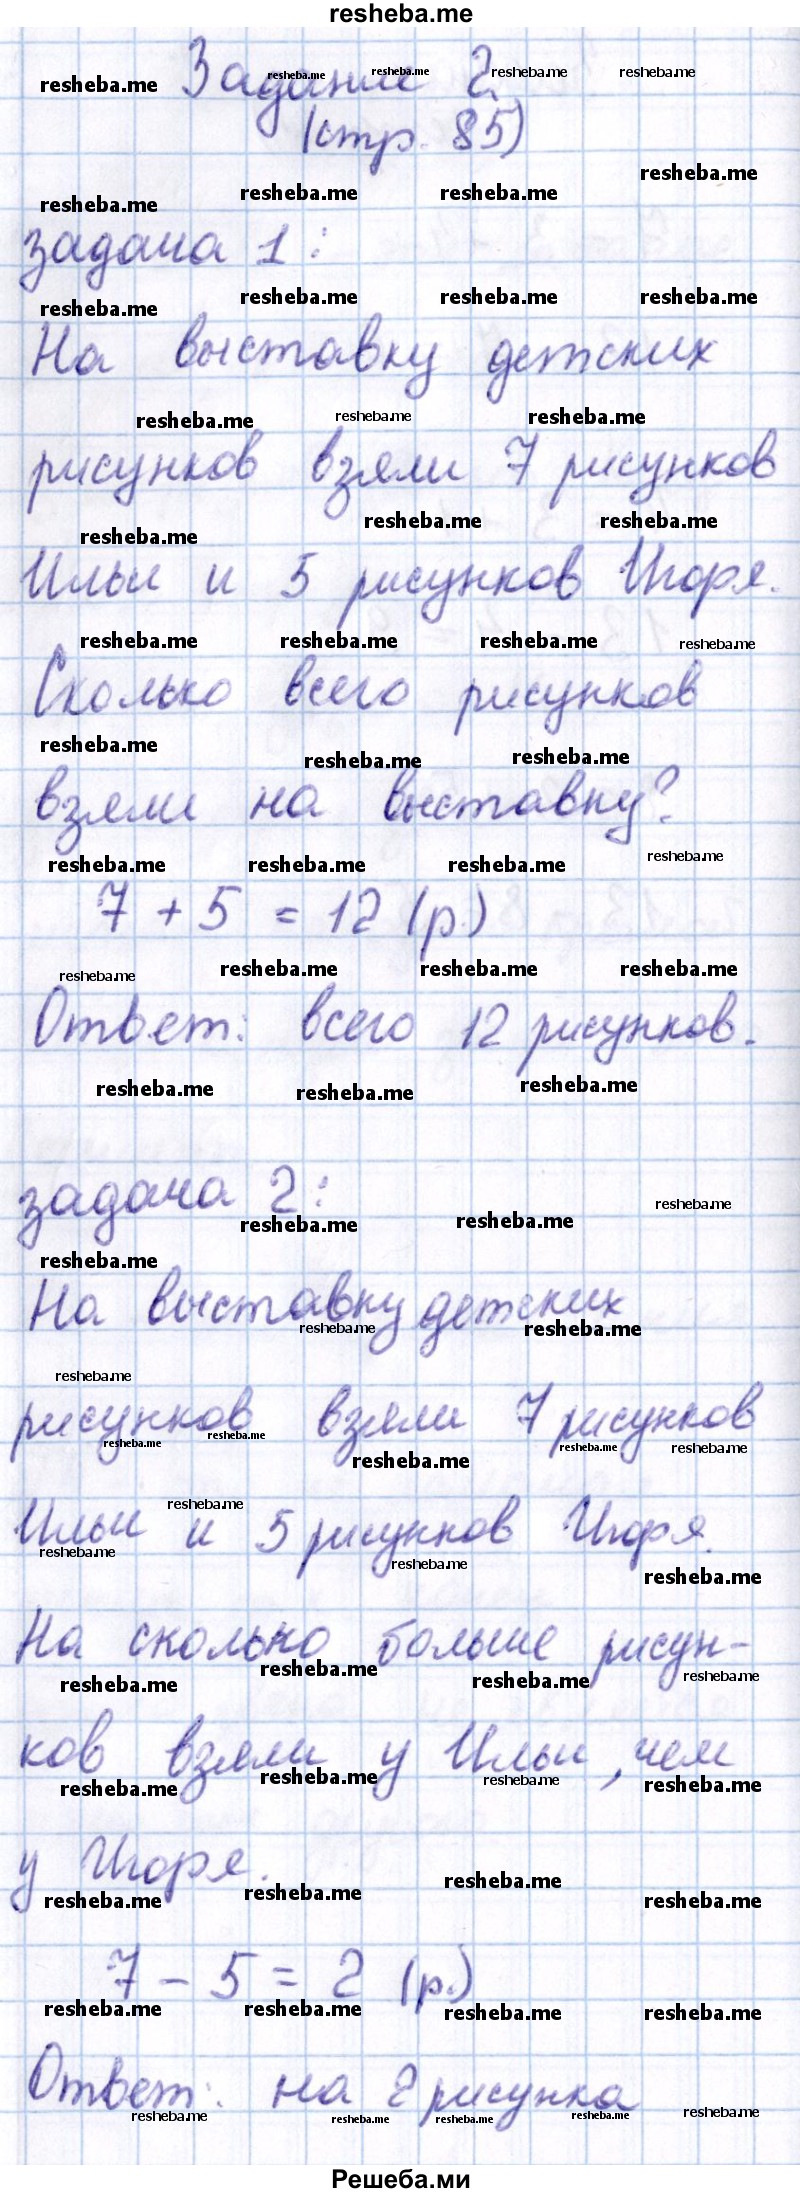 resheba.me
Задание 2
(стр. 85)
задача 1:
На выставку детских
рисунков взяли 7 рисунков
Ильи и 5 рисунков Игоря.
Сколько всего рисунков
взяли на выставку?
7 + 5 = 12 (р.)
Ответ: всего 12 рисунков.
задача 2:
На выставку детских
рисунков взяли 7 рисунков
Ильи и 5 рисунков Игоря.
На сколько больше рисун-
ков взяли у Ильи, чем
у Игоря.
7 - 5 = 2 (р.)
Ответ: на 2 рисунка
Решеба.ми